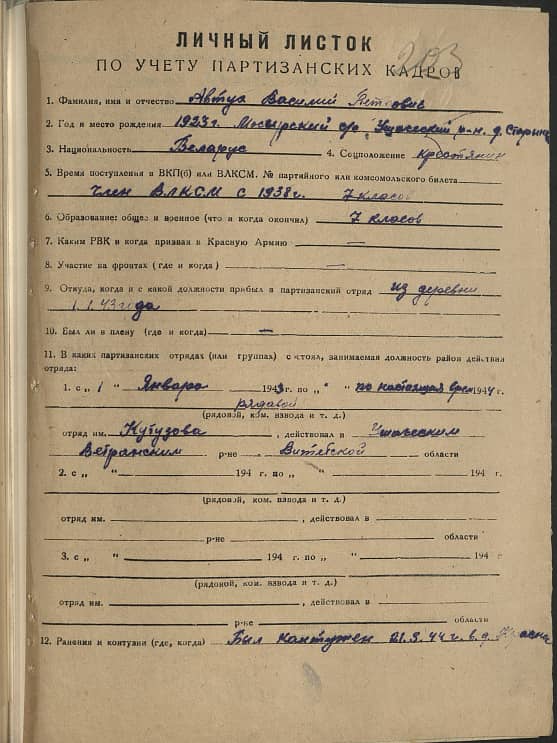 203
ЛИЧНЫЙ ЛИСТОК
ПО УЧЕТУ ПАРТИЗАНСКИХ КАДРОВ
1. Фамилия, имя и отчество Автух Василий Петрович
2. Год и место рождения 1923г. Мосарский с/с Ушачский р-н. д. Старина
3. Национальность Беларус 4. Соцположение крестянин
5. Время поступления в ВКП(б) или ВЛКСМ. № партийного или комсомольского билета
член ВЛКСМ с 1938г. 7 класов
6. Образование: общее и военное (что и когда окончил) 7 класов
7. Каким РВК и когда призван в Красную Армию —
8. Участие на фронтах (где и когда) —
9. Откуда, когда и с какой должности прибыл в партизанский отряд из деревни
1.1.43 года
10. Был ли в плену (где и когда) —
11. В каких партизанских отрядах (или группах) состоял, занимаемая должность район действия
отряда:
1. с „ 1 " Января 1943 г. по „ " по настоящая врем 1944 г.
рядавой
(рядовой, ком. взвода и т. д.)
отряд им. Кутузова, действовал в Ушачским
Ветранским р-не Витебской области
2. с „ " 194 г. по „ " 194 г.
(рядовой, ком. взвода и т. д.)
отряд им. , действовал в
р-не области
3. с „ " 194 г. по „ " 194 г.
(рядовой, ком. взвода и т. д.)
отряд им. , действовал в
р-не области
12. Ранения и контузии (где, когда) Был кантужен 21.3.44 г. в д.